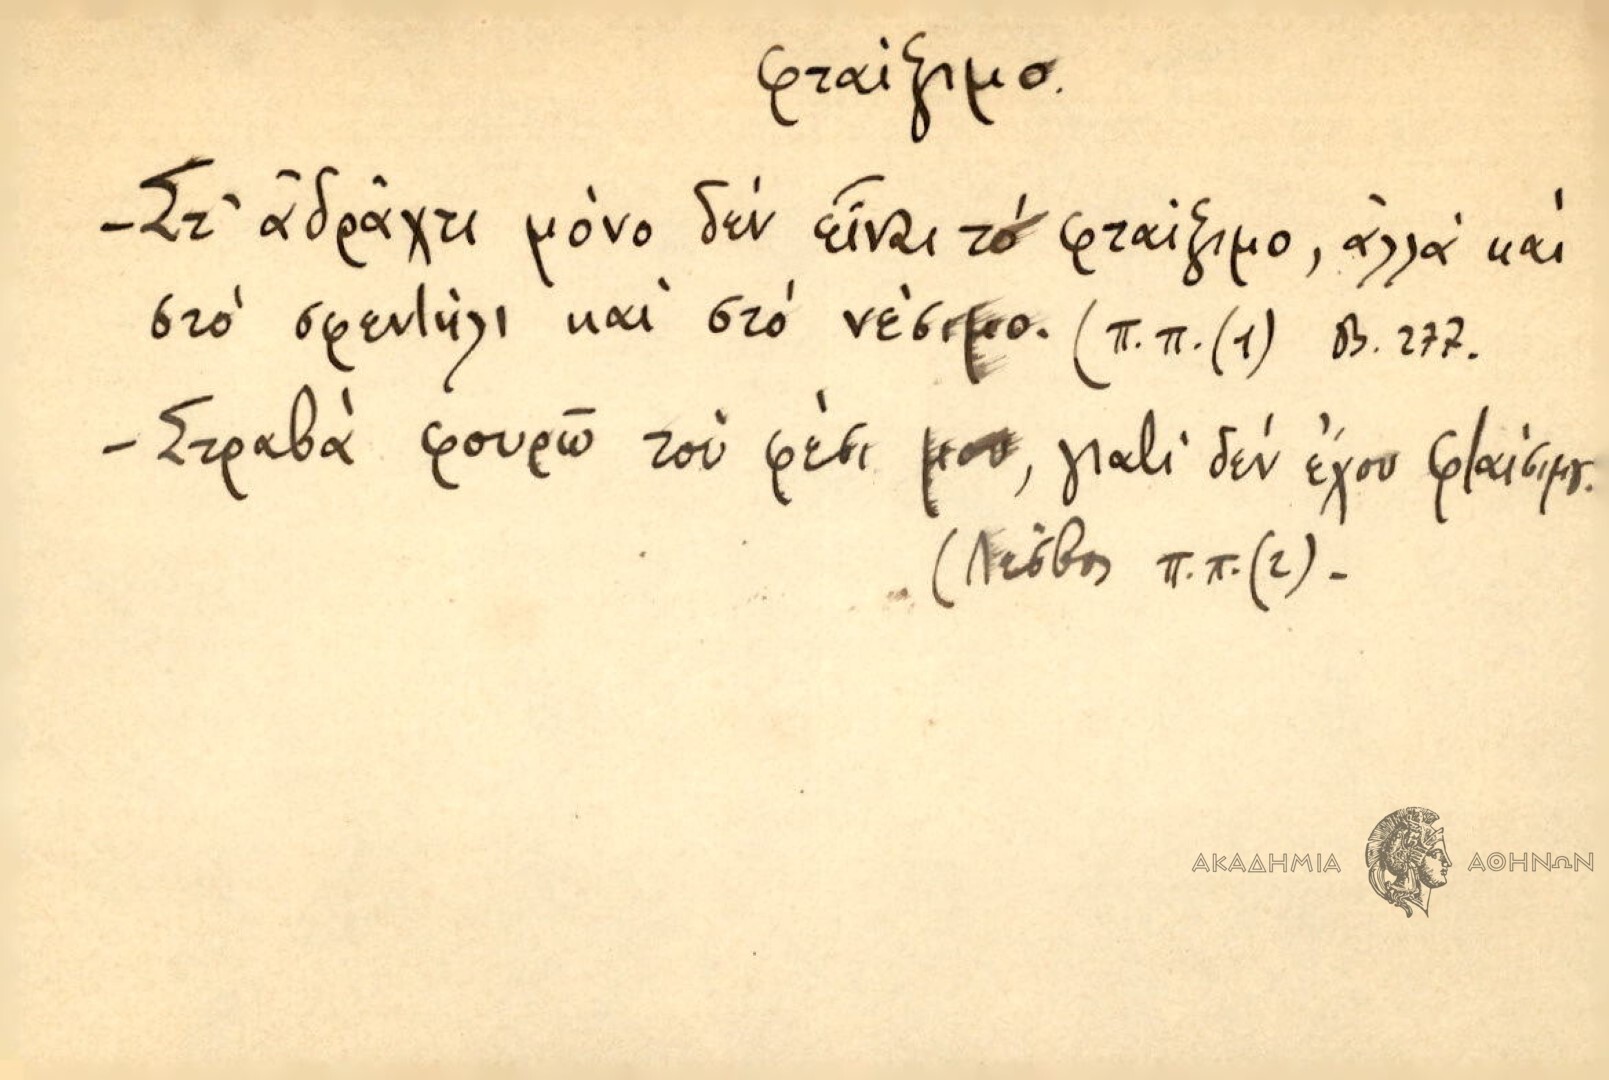 φταίξιμο.
- Στ' ἀδράχτι μόνο δέν εἶναι τό φταίξιμο, ἀλλά καί
στό σφεντήλι καί στό νέσιμο. (π.π.(1) Β. 277.
- Στραβά φουρῶ τοὺ φέσι μου, γιατί δέν ἔχου φταίσιμου.
(Λέσβος π.π.(2) -
ΑΚΑΔΗΜΙΑ ΑΘΗΝΩΝ